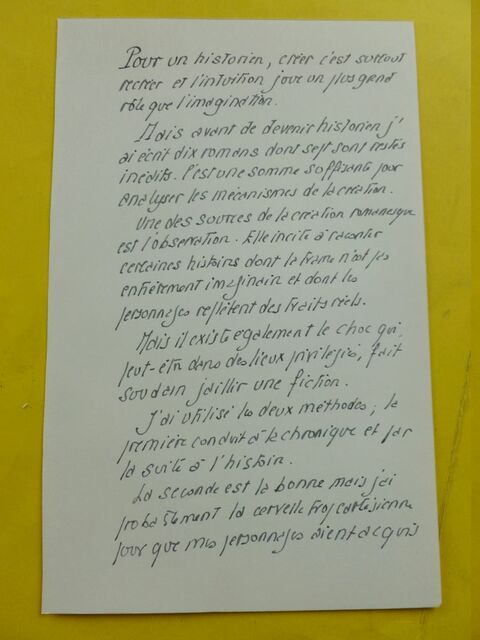 Pour un historien, créer c'est surtout
recréer et l'intuition joue un plus grand
rôle que l'imagination.
Mais avant de devenir historien j'
ai écrit dix romans dont sept sont restés
inédits. C'est une somme suffisante pour
analyser les mécanismes de la création.
Une des sources de la création romanesque
est l'observation. Elle incite à raconter
certaines histoires dont la trame n'est pas
entièrement imaginaire et dont les
personnages reflètent des traits réels.
Mais il existe également le choc qui,
peut-être dans des lieux privilégiés, fait
soudain jaillir une fiction.
J'ai utilisé les deux méthodes ; la
première conduit à la chronique et par
la suite à l'histoire.
La seconde est la bonne mais j'ai
probablement la cervelle trop cartésienne
pour que mes personnages aient acquis